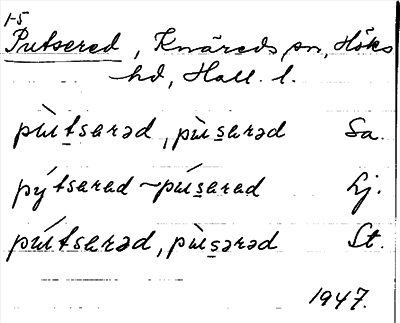 1-5
Putsered, Knäreds sn, Höks
hd, Hall. l.
pùtsarəd, pùsarəd Sa.
pýtsarad ~ púsarad Lj.
pútsarəd, pùsərəd St.
1947.